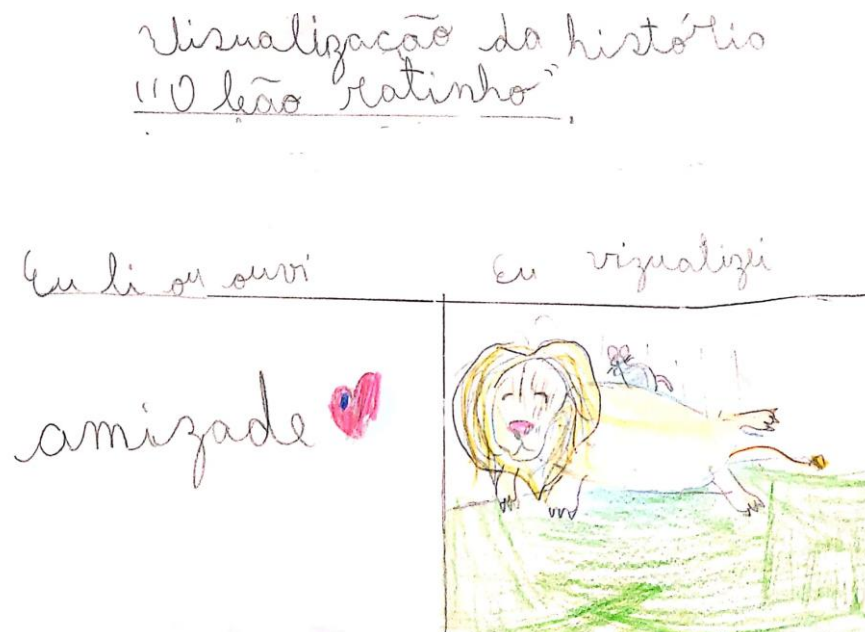 Visualização da história
"O leão ratinho"
Eu li ou ouvi
Eu vizualizei
amizade